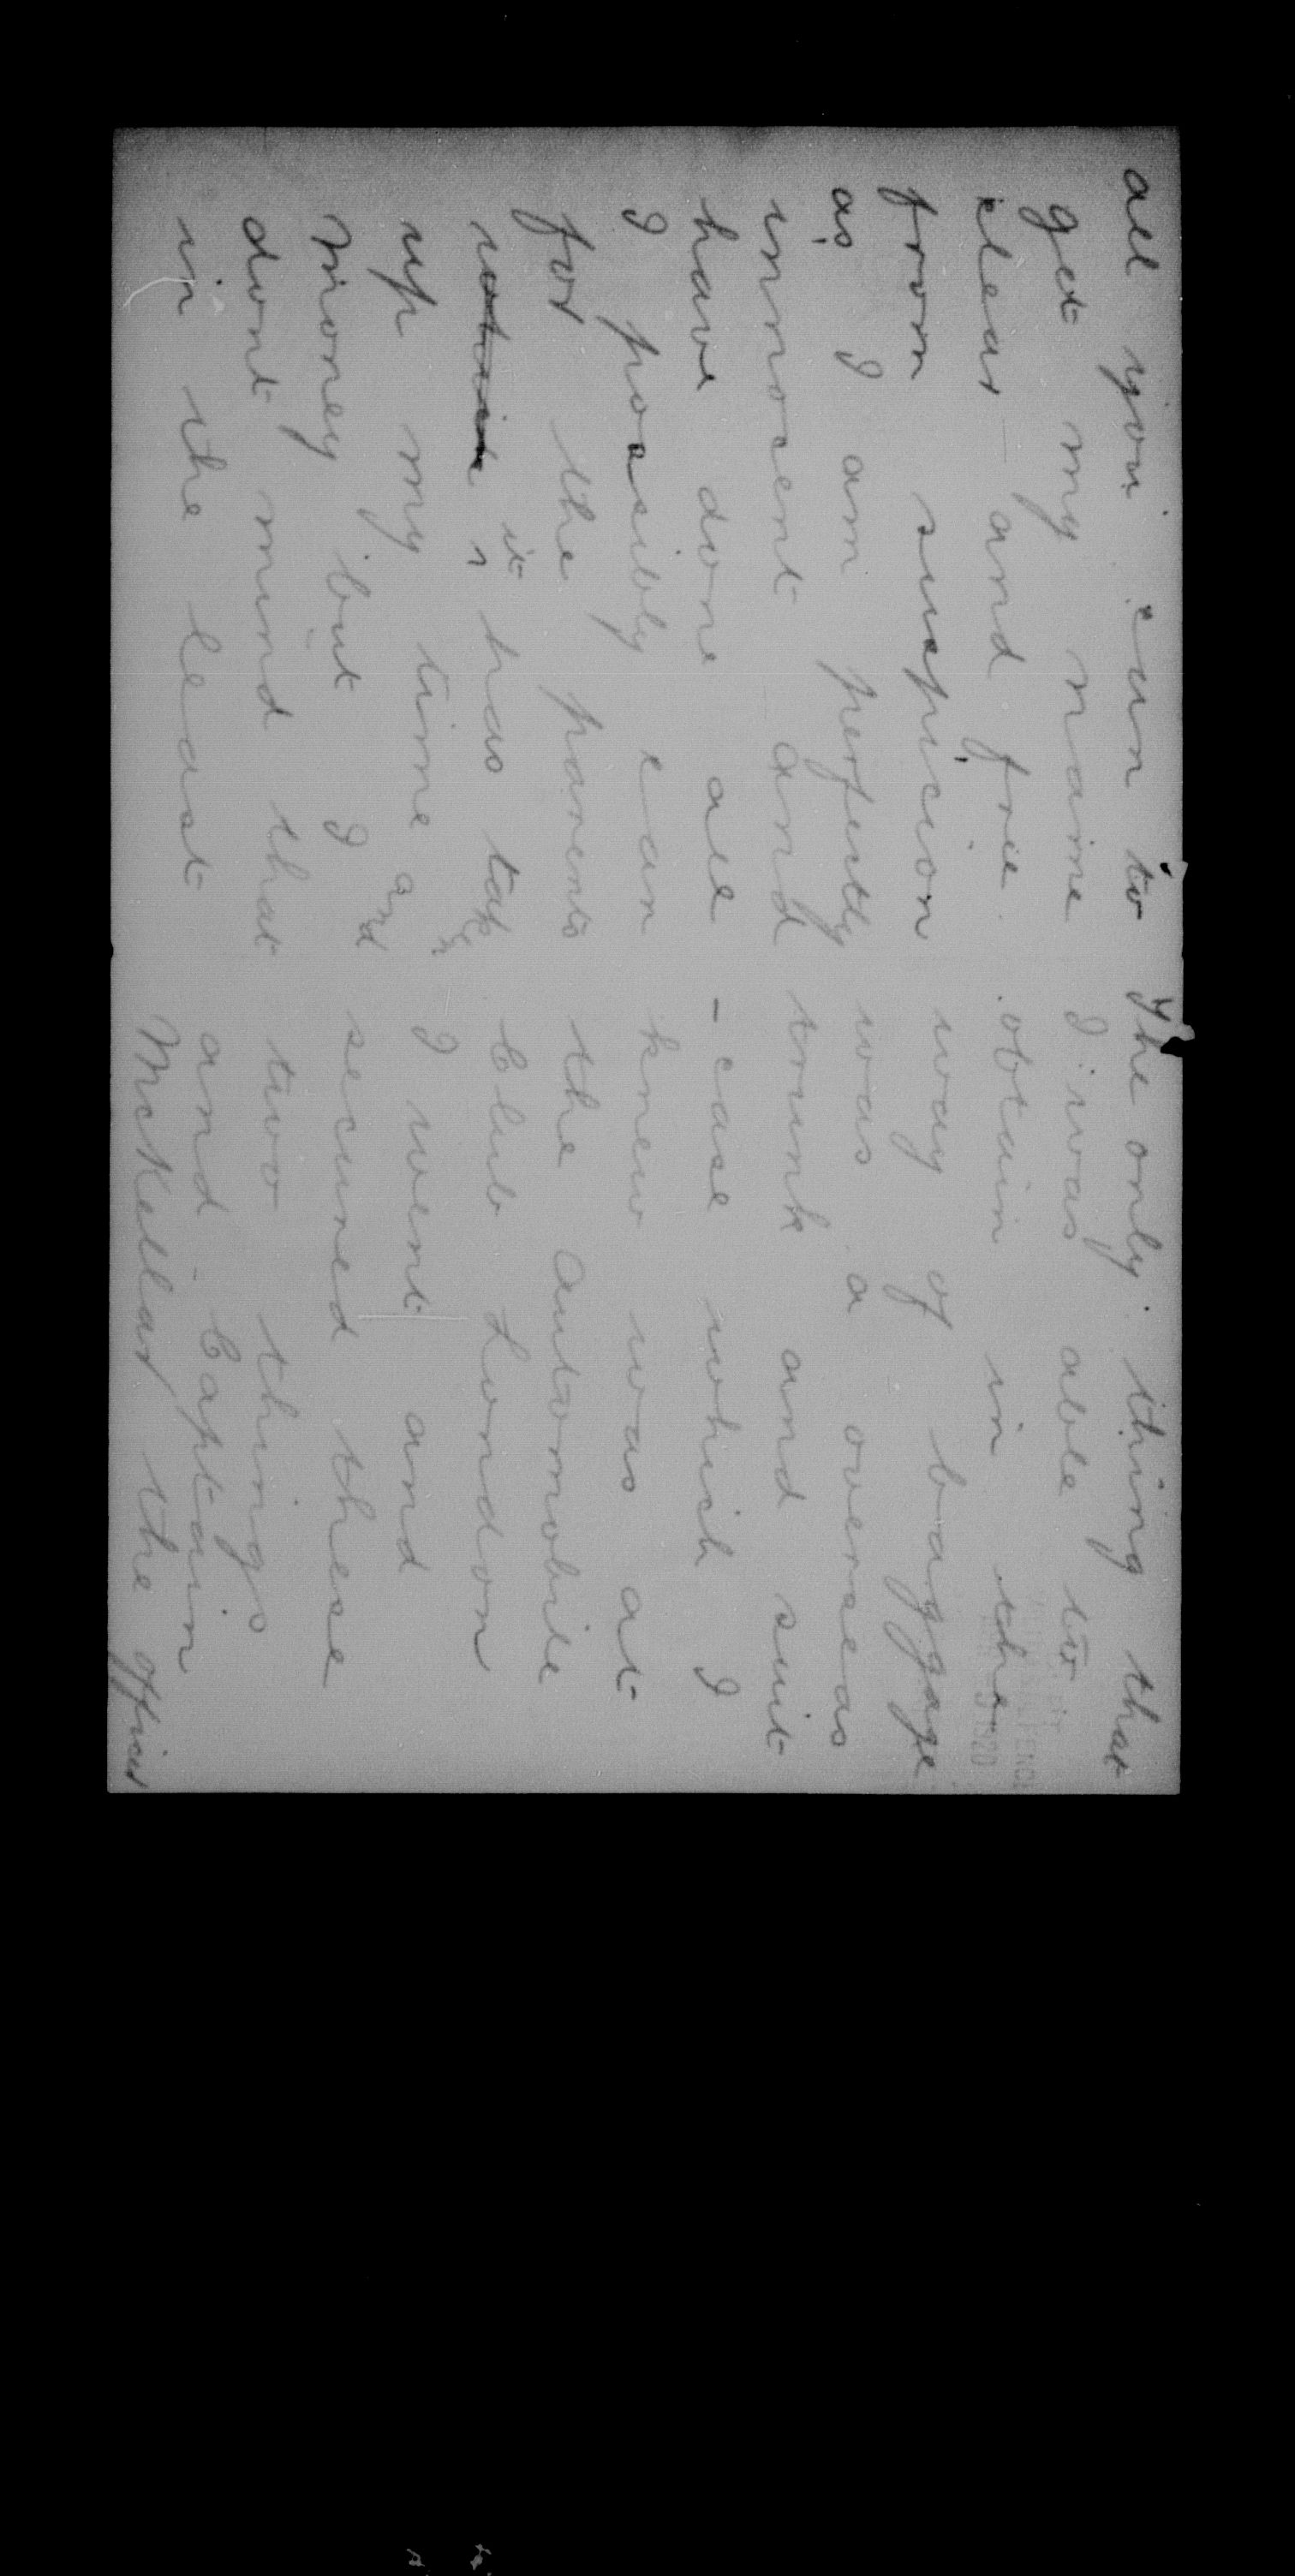 all you can to
get my name
clear and free
from suspicion
as I am perfectly
innocent and
have done all
I possibly can
for the parents
it has taken
up my time and
money but I
dont mind that
in the least
The only thing that
I was able to
obtain in the
way of baggage
was a overseas
trunk and suit
- case which I
knew was at
the Automobile
Club London
I went and
secured these
two things
and Captain
McKellar the officer
1920